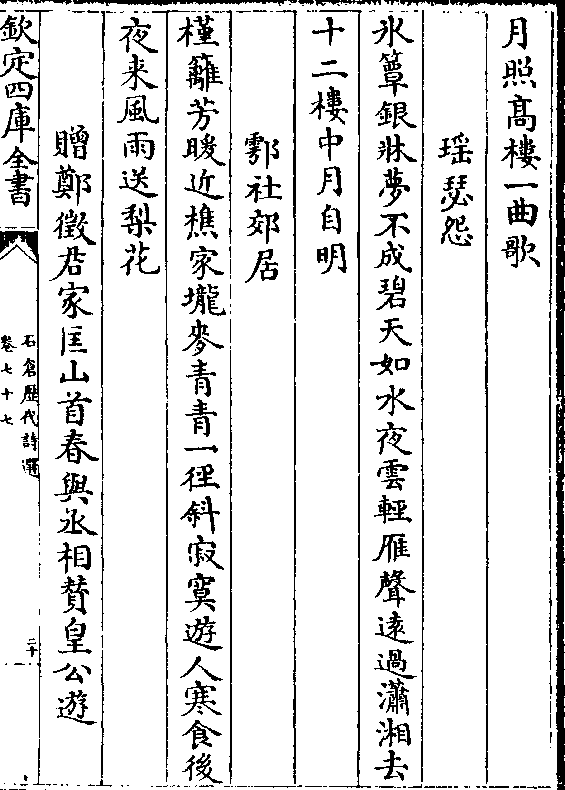 月照高樓一曲歌
瑶瑟怨
氷簟銀牀夢不成碧天如水夜雲輕雁聲逺過瀟湘去
十二樓中月自明
鄠社郊居
槿籬芳暖近樵家壠麥青青一徑斜寂寞遊人寒食後
夜来風雨送梨花
贈鄭徵君家匡山首春與丞相賛皇公遊
欽定四庫全書
石倉歴代詩選
卷七十七
二十